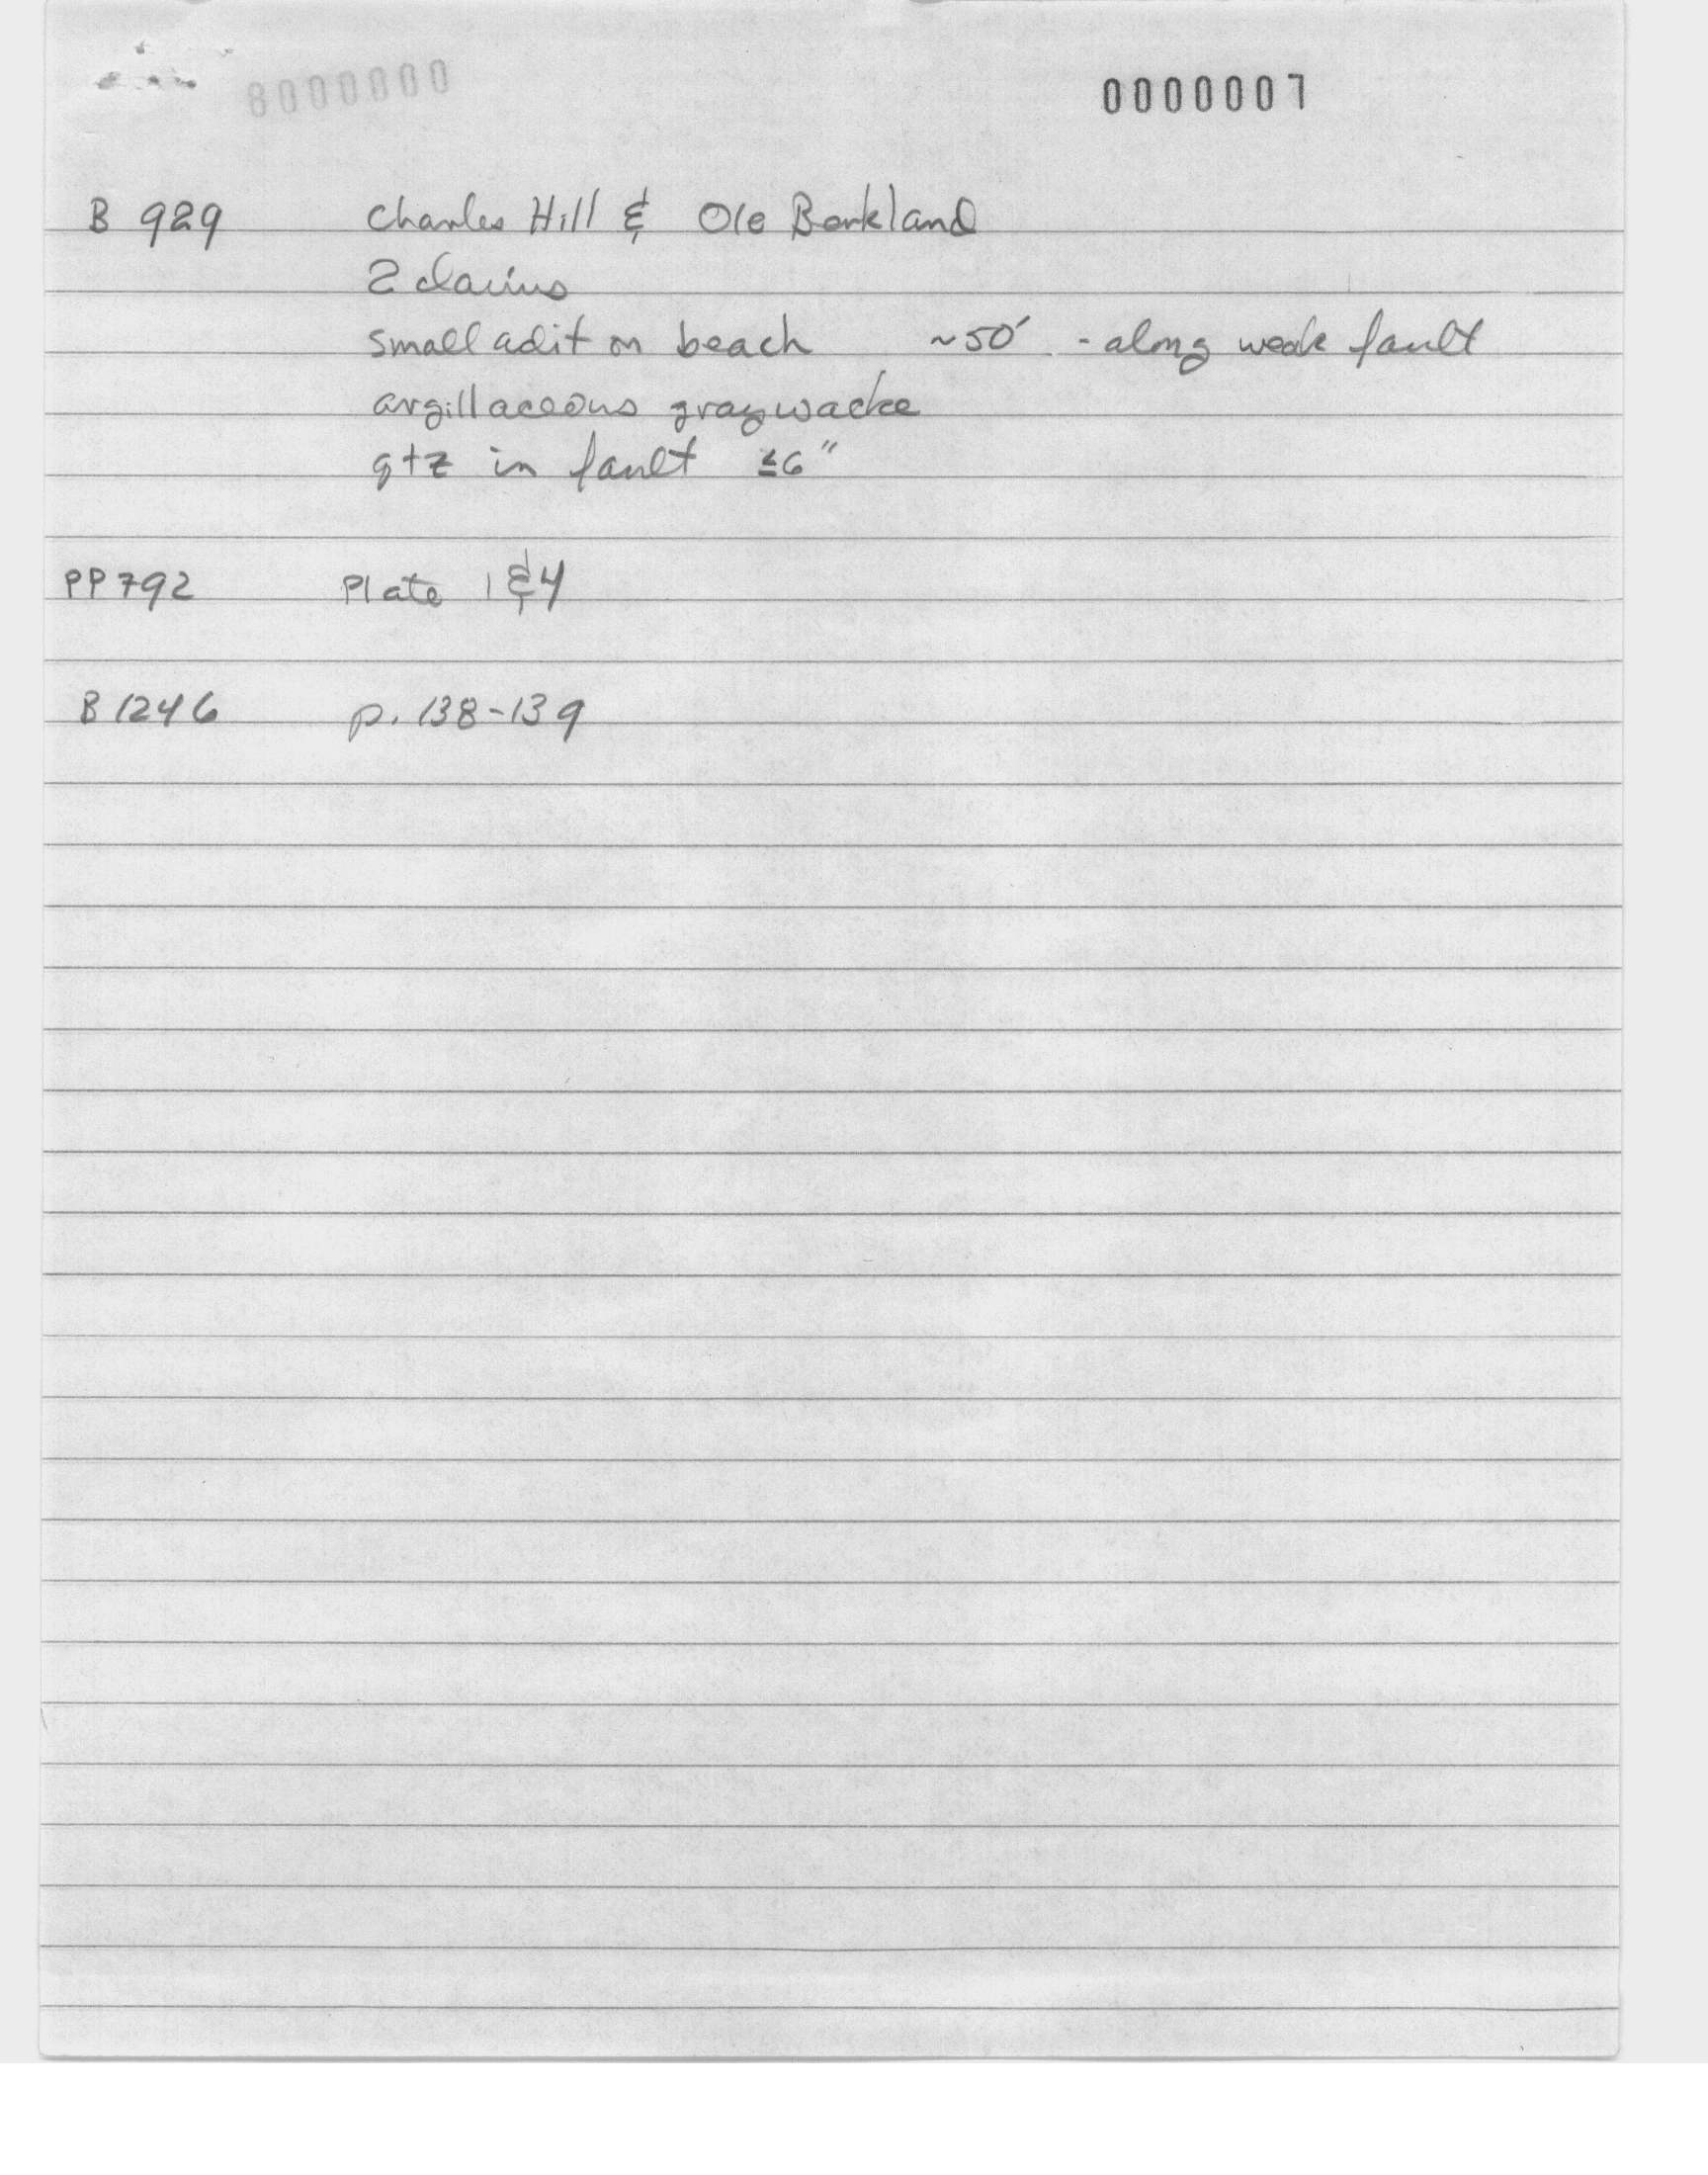 8000000 0000007
B 929 Charles Hill & Ole Borkland
2 claims
small adit on beach ~50' - along weak fault
argillaceous graywacke
qtz in fault ≤6"
PP 792 Plate 1 & 4
B 1246 p. 138-139